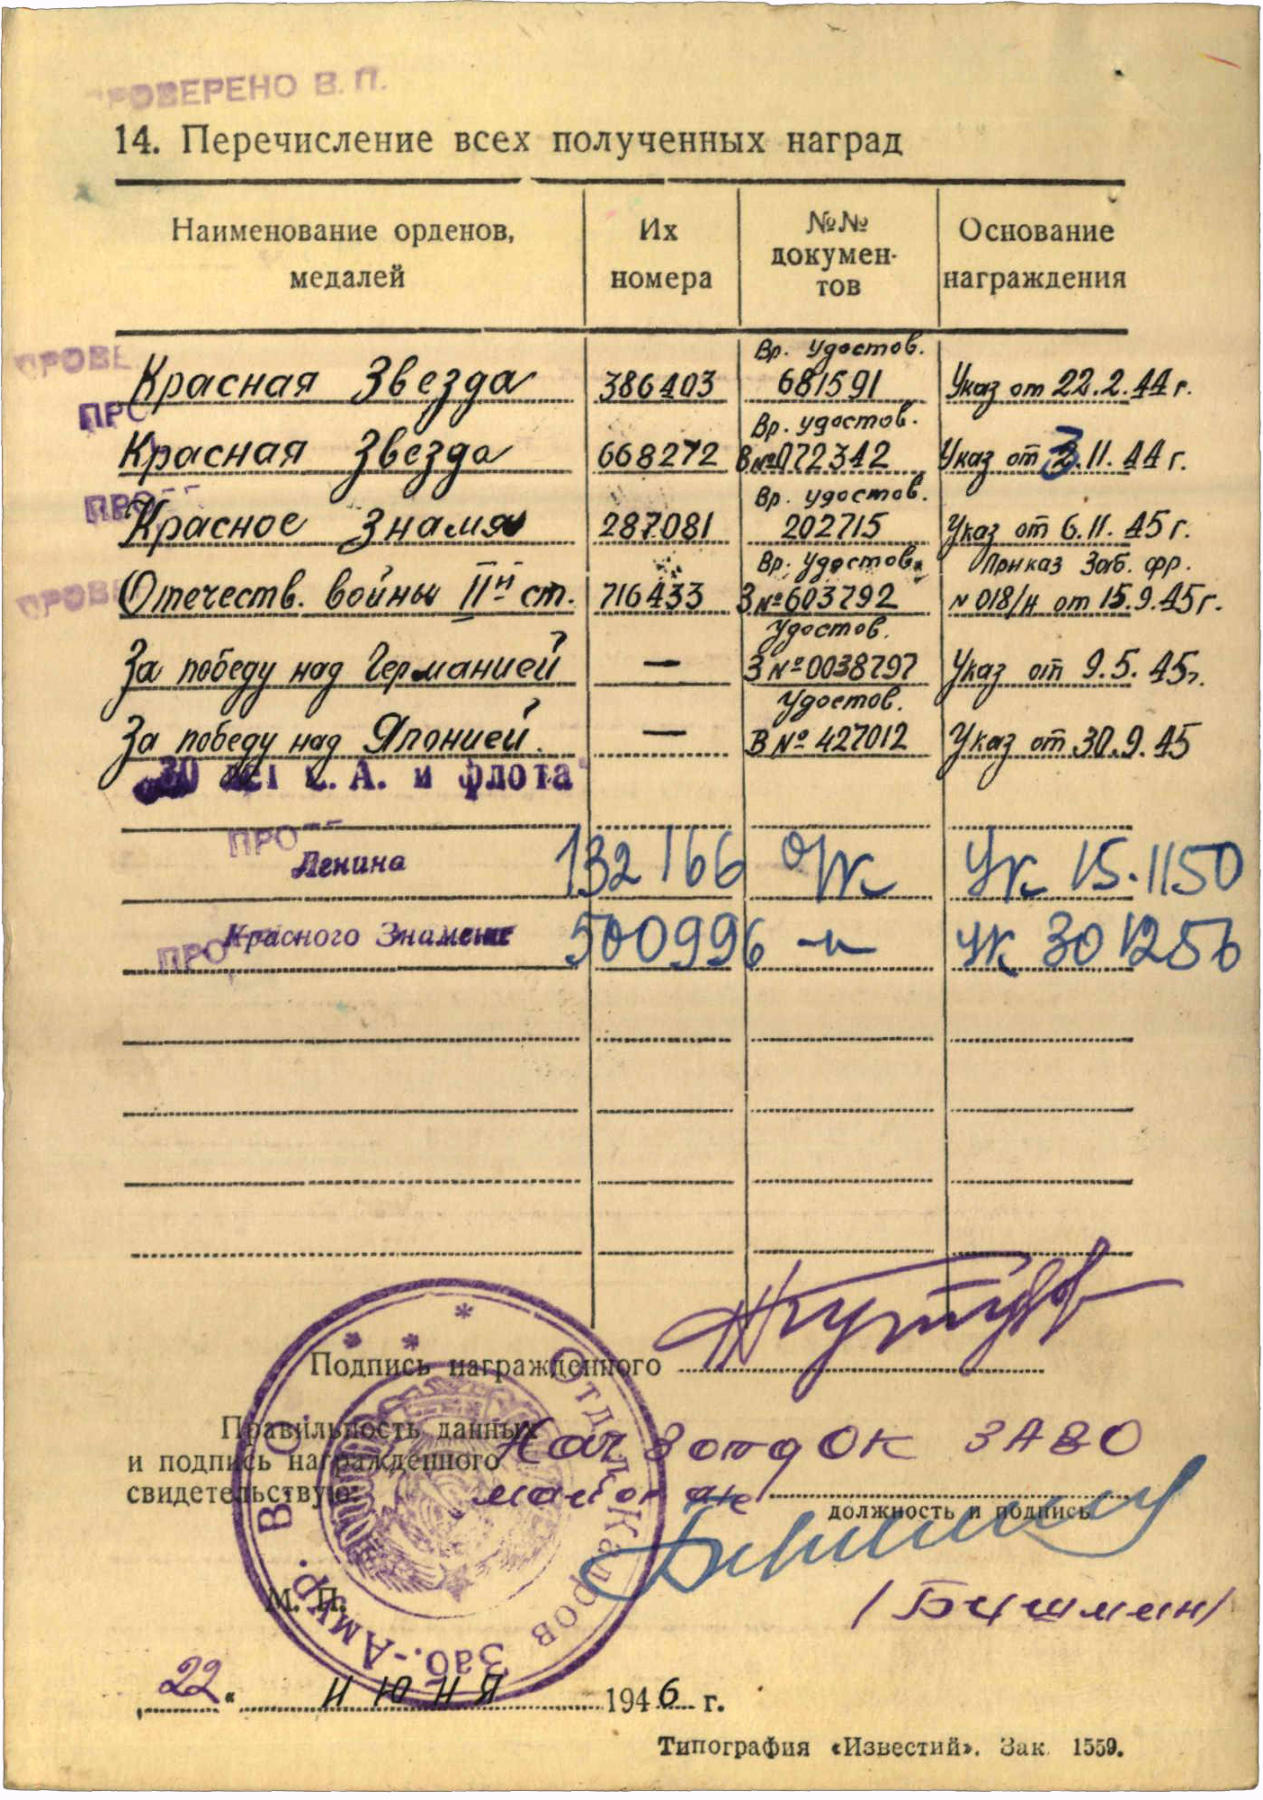 ПРОВЕРЕНО В. П.
14. Перечисление всех полученных наград
Наименование орденов, медалей
Их номера
№№ документов
Основание награждения
Вр. удостов.
ПРОВЕ
Красная Звезда 386403 681591 Указ от 22.2.44 г.
ПРО
Вр. удостов.
Красная Звезда 668272 В №072342 Указ от 3.11.44 г.
ПРО
Вр. удостов.
Красное Знамя 287081 202715 Указ от 6.11.45 г.
Вр. удостов. Приказ Заб. фр.
ПРОВЕ
Отечеств. войны II й ст. 716433 З №603792 № 018/н от 15.9.45 г.
Удостов.
За победу над Германией — З №0038797 Указ от 9.5.45г.
Удостов.
За победу над Японией. — В № 427012 Указ от 30.9.45
30 лет С. А. и флота
ПРО
Ленина 132166 о/к Ук 15.1150
ПРО
Красного Знамени 500996 -"- Ук 301256
Подпись награжденного
Правильность данных
и подпись награжденного
свидетельствую:
Нач 3 отд ОК ЗАВО
майор
должность и подпись
М. П.
Отдел Кадров Заб.-Амур. В О
22 июня 1946 г.
Типография «Известий». Зак. 1559.